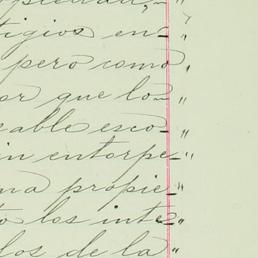 opiedad,-
tigios en-
pero como "
or que lo- "
cable esco- "
in entorpe- "
na propie- "
to los inte- "
los de la "